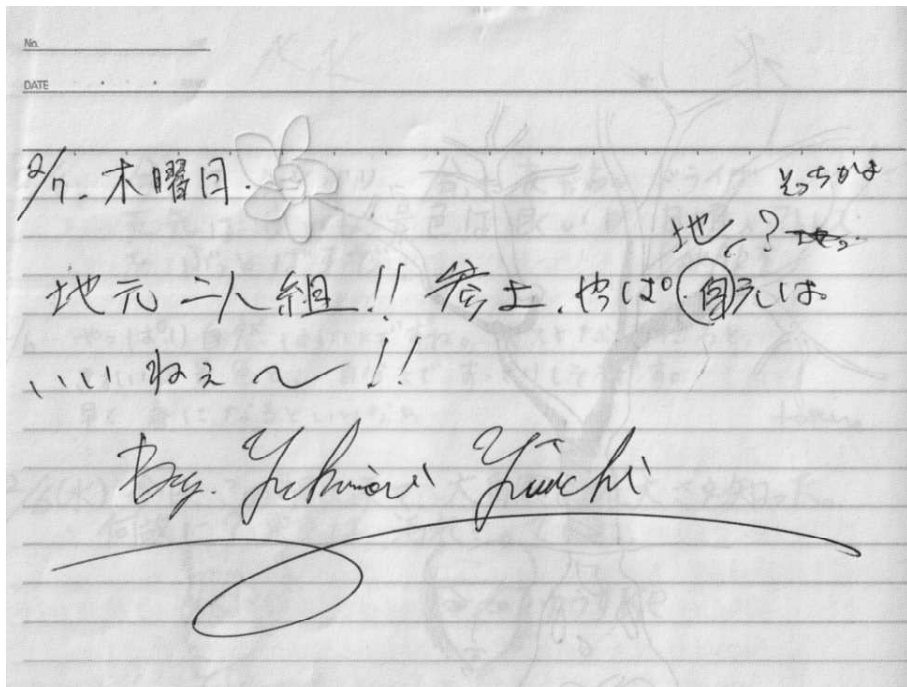 No.
DATE
2/7. 木曜日.
そっちかよ
地 ?
地元 二人 組!! 参上. やぱ 自元は
いいねぇ〜!!
By. Yukinori Yuuichi